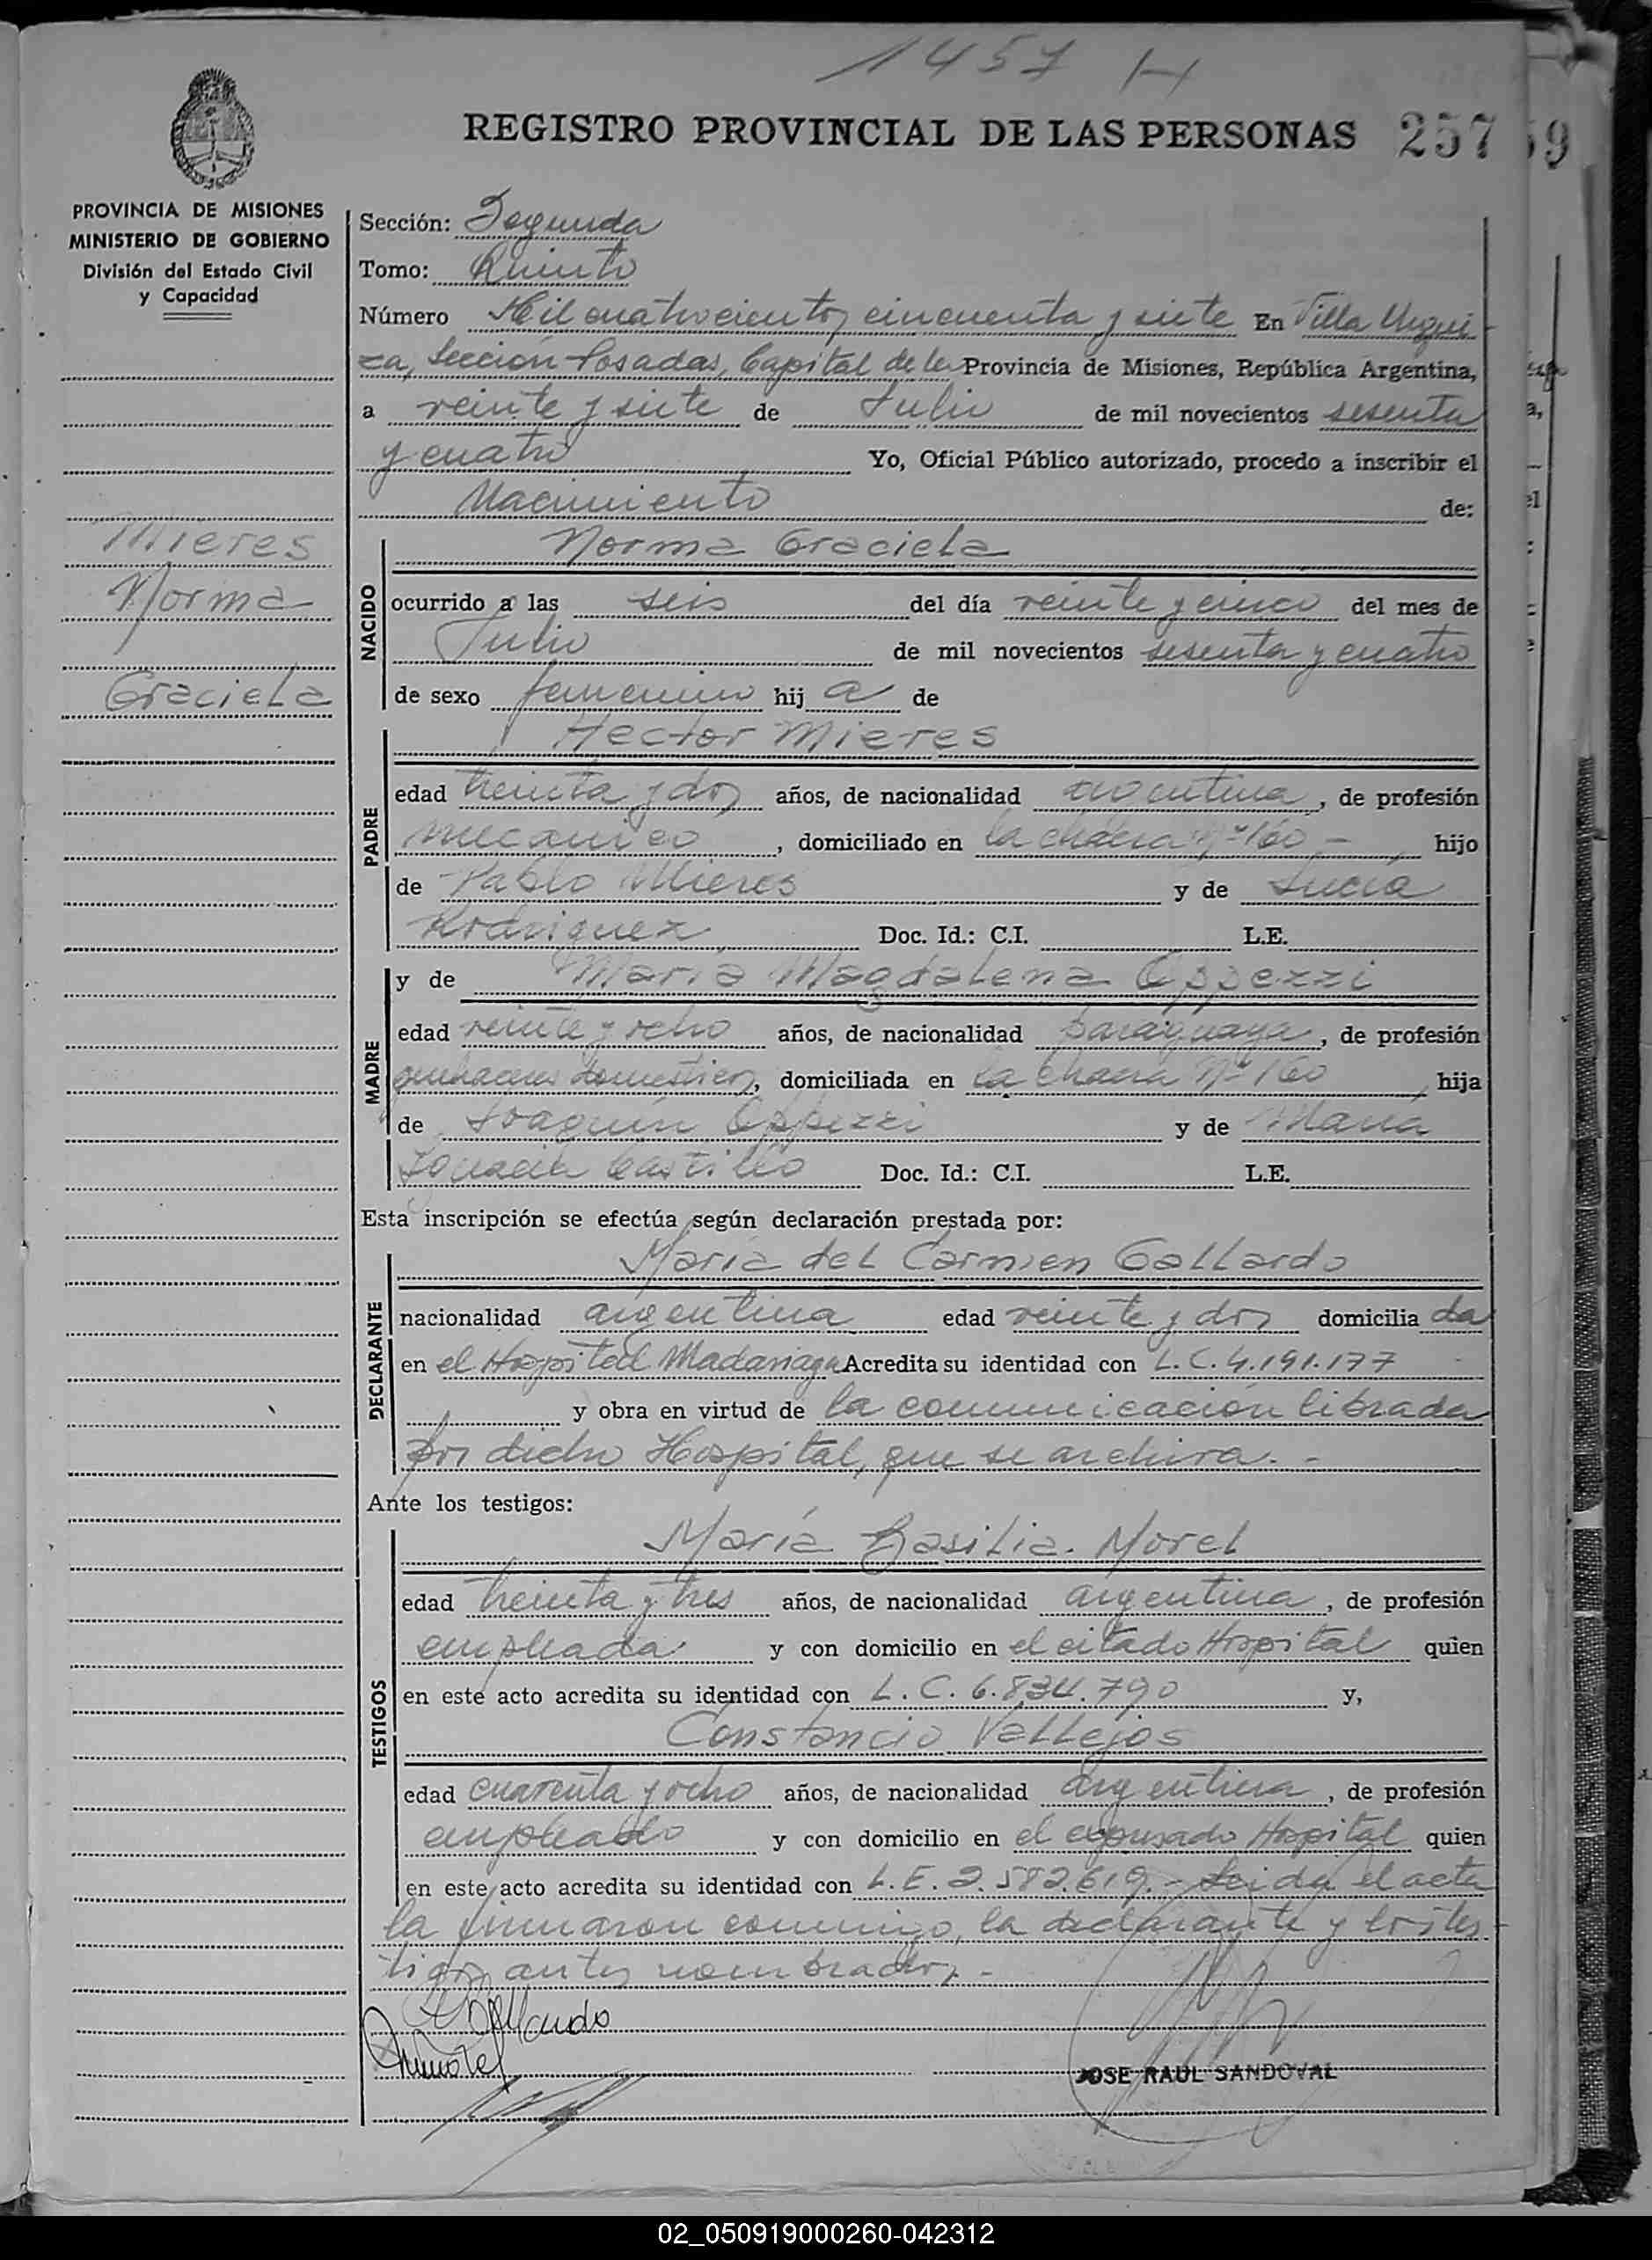 1457 H
REGISTRO PROVINCIAL DE LAS PERSONAS 257 59
PROVINCIA DE MISIONES
MINISTERIO DE GOBIERNO
División del Estado Civil
y Capacidad
Sección: Segunda
Tomo: Quinto
Número Mil cuatrocientos cincuenta y siete En Villa Urqui-
za, Sección Posadas, Capital de la Provincia de Misiones, República Argentina,
a veinte y siete de Julio de mil novecientos sesenta
y cuatro Yo, Oficial Público autorizado, procedo a inscribir el
Nacimiento de:
Mieres
Norma
Graciela
NACIDO
Norma Graciela
ocurrido a las seis del día veinte y cinco del mes de
Julio de mil novecientos sesenta y cuatro
de sexo femenino hij a de
PADRE
Hector Mieres
edad treinta y dos años, de nacionalidad argentina, de profesión
mecanico, domiciliado en la chacra Nº 160 - hijo
de Pablo Mieres y de Lucía
Rodriguez Doc. Id.: C.I. L.E.
MADRE
y de María Magdalena Oppezzi
edad veinte y ocho años, de nacionalidad paraguaya, de profesión
quehaceres domesticos, domiciliada en la chacra Nº 160 hija
de Joaquín Oppezzi y de María
Ignacia Castillo Doc. Id.: C.I. L.E.
Esta inscripción se efectúa según declaración prestada por:
DECLARANTE
María del Carmen Gallardo
nacionalidad argentina edad veinte y dos domicilia da
en el Hospital Madariaga Acredita su identidad con L.C. 4.191.177
y obra en virtud de la comunicación librada
por dicho Hospital, que se archiva. -
Ante los testigos:
TESTIGOS
María Basilia Morel
edad treinta y tres años, de nacionalidad argentina, de profesión
empleada y con domicilio en el citado Hospital quien
en este acto acredita su identidad con L.C. 6.834.790 y,
Constancio Vallejos
edad cuarenta y ocho años, de nacionalidad argentina, de profesión
empleado y con domicilio en el expresado Hospital quien
en este acto acredita su identidad con L.E. 2.582.619. - Leida el acta
la firmaron conmigo, la declarante y los tes-
tigos antes nombrados. -
Gallardo
JOSE RAUL SANDOVAL
02_050919000260-042312